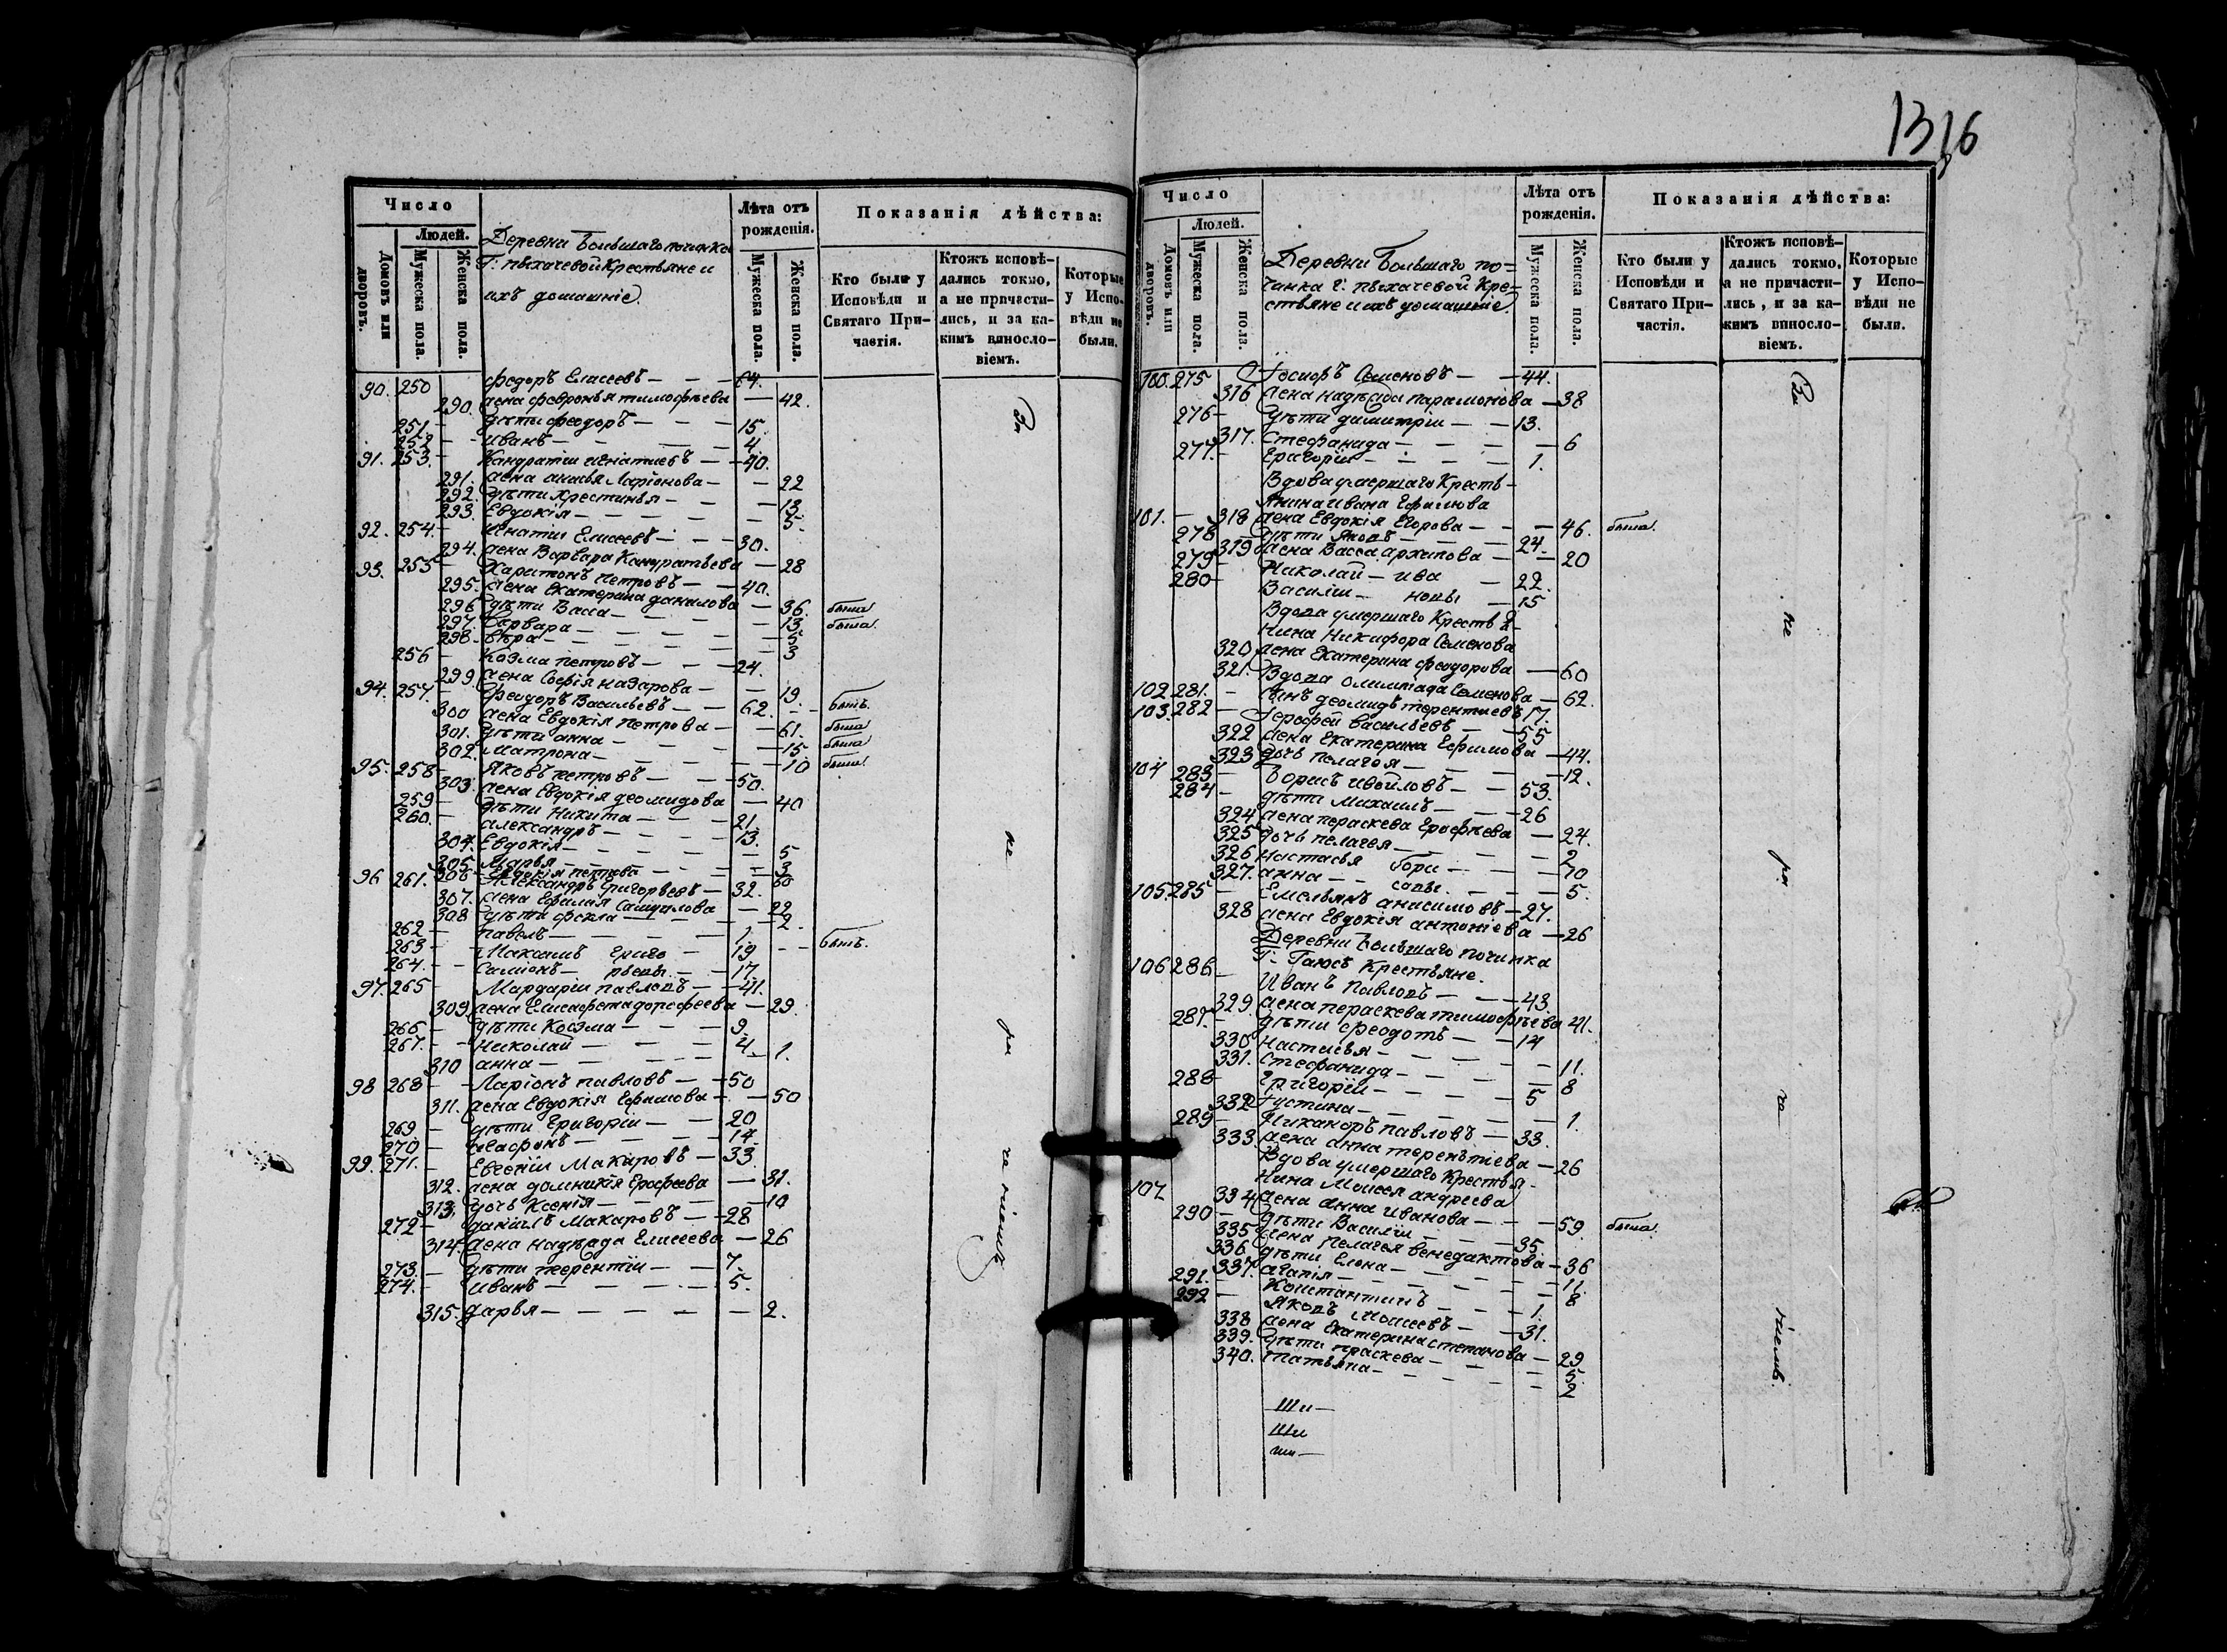 1316
Число
Людей.
Домовъ или дворовъ.
Мужеска пола.
Женска пола.
Деревни Большаго починка
Г: пыхачевой Крестьяне и
ихъ домашніе.
Лѣта отъ рожденія.
Мужеска пола.
Женска пола.
Показанія дѣйства:
Кто были у Исповѣди и Святаго При-частія.
Ктожъ исповѣ-дались токмо, а не причасти-лись, и за ка-кимъ винosло-віемъ.
Которые у Испо-вѣди не были.
90. 250 федоръ Елисеевъ — 64.
290. жена февронья тимофѣева — 42.
251. дѣти феодоръ — 15
252 иванъ — 4
91. 253. Кандратіи игнатиевъ — 40.
291. жена анисья Ларіонова — 22
292. дѣти Хрестинья — 13
293. Евдокія — 5.
92. 254. игнатіи Елисеевъ — 30.
294. жена Варвара Кандратьева — 28
93. 255 Харитонъ петровъ — 40.
295. жена Екатерина данилова — 36. была
296 дѣти Васса — 13. была.
297. Варвара — 5
298 вѣра — 3
256 Козма петровъ — 24.
299. жена Софія назарова — 19.
94. 257. Феодоръ Васильевъ — 62. былъ.
300 жена Евдокія петрова — 61. была
301. дѣти анна — 15 была
302. Матрона — 10 была.
95. 258 Яковъ петровъ — 50.
303. жена Евдокія деомидова — 40
259 дѣти Никита — 21.
260. александръ — 13.
304. Евдокія — 5
305. Марья — 3
306 Евдокія петрова — 60
96 261. Александръ Григорьевъ — 32.
307. жена Ефимия Самуилова — 22
308 дѣти фекла — 2.
262 павелъ — 1
263 Максимъ григо — 19 былъ.
264. Симіонъ — рьевы — 17.
97. 265 Мардаріи павловъ — 41.
309. жена Елисафета дорофеева — 29.
266 дѣти Козма — 9.
267. Николай — 4.
310 анна — 1.
98 268 Ларіонъ павловъ — 50
311. жена Евдокія Ефимова — 50
269 дѣти Григоріи — 20
270 агафонъ — 14
99. 271. Евгеніи Макаровъ — 33
312. жена домникія Ерофеева — 31.
313. дочь Ксенія — 10
272 даніилъ Макаровъ — 28
314. жена надѣжда Елисеева — 26
273. дѣти терентіи — 7.
274. иванъ — 5.
315. дарья — 2.
За не ра че ніемъ
Число
Людей.
Домовъ или дворовъ.
Мужеска пола.
Женска пола.
Деревни Большаго по=
чинка г: пыхачевой Кре=
стьяне и ихъ домашніе.
Лѣта отъ рожденія.
Мужеска пола.
Женска пола.
Показанія дѣйства:
Кто были у Исповѣди и Святаго При-частія.
Ктожъ исповѣ-дались токмо, а не причасти-лись, и за ка-кимъ винosло-віемъ.
Которые у Испо-вѣди не были.
100. 275 Іосифъ Семеновъ — 44.
316 жена надѣжда парамонова — 38
276 дѣти димитріи — 13.
317. Стефанида — 6
277. Григоріи — 1.
Вдова умершаго Кресть-
янина ивана Ефимова
101. 318 жена Евдокія Егорова — 46. была.
278 дѣти Яковъ — 24.
319 жена Васса архипова — 20
279 Николай — ива — 22.
280 Василіи — новы — 15
Вдова умершаго Крестья-
нина Никифора Семенова
320 жена Екатерина феодорова — 60
321. Вдова олимпіада Семенова — 62.
102 281. сынъ деомидъ терентиевъ 17.
103. 282 Іерофеи васильевъ — 55
322 жена Екатерина Ефимова — 44.
323 дочь пелагея — 12.
104 283 Борисъ ивойловъ — 53.
284 дѣти михаилъ — 26
324 жена пераскева Ерофѣева — 24.
325 дочь пелагея — 2
326 настасья бори — 10
327. анна — совы — 5.
105. 285 Емельянъ анисимовъ — 27.
328 жена Евдокія антоніева — 26
Деревни Большаго починка
Г: Гаюсъ Крестьяне.
106 286 Иванъ Павловъ — 43.
329. жена пераскева тимофѣева 41.
287. дѣти феодотъ — 14
330 настасья — 11.
331. стефанида — 8
288 Григоріи — 5
332 Густина — 1.
289 Никаноръ павловъ — 33.
333 жена анна терентіева — 26
Вдова умершаго Крестья-
нина Моисея андреева
107 334 жена анна иванова — 59 была.
290 дѣти Василіи — 35
335 жена пелагея венедактова — 36
336 дѣти Елена — 11.
337. агапія — 8
291. Константинъ — 1.
292 Яковъ Моисеевъ — 31.
338 жена Екатерина степанова — 29
339. дѣти праскева — 5.
340. татьяна — 2
За не ра че ніемъ.